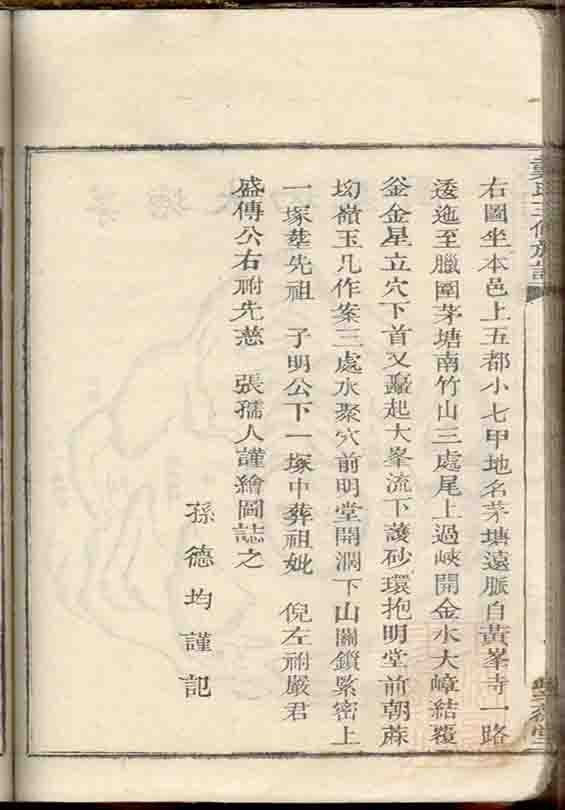 右圖坐本邑上五都小七甲地名茅塘遠脈自黃峯寺一路
逶迤至臘圍茅塘南竹山三處尾上過峽開金水大嶂結覆
釜金星立穴下首又矗起大峯流下護砂環抱明堂前朝蔴
坳嶺玉几作案三處水聚穴前明堂開濶下山關鎖緊密上
一塚塟先祖　子明公下一塚中葬祖妣　倪左祔嚴君
盛傳公右祔先慈　張孺人謹繪圖誌之
孫德均謹記